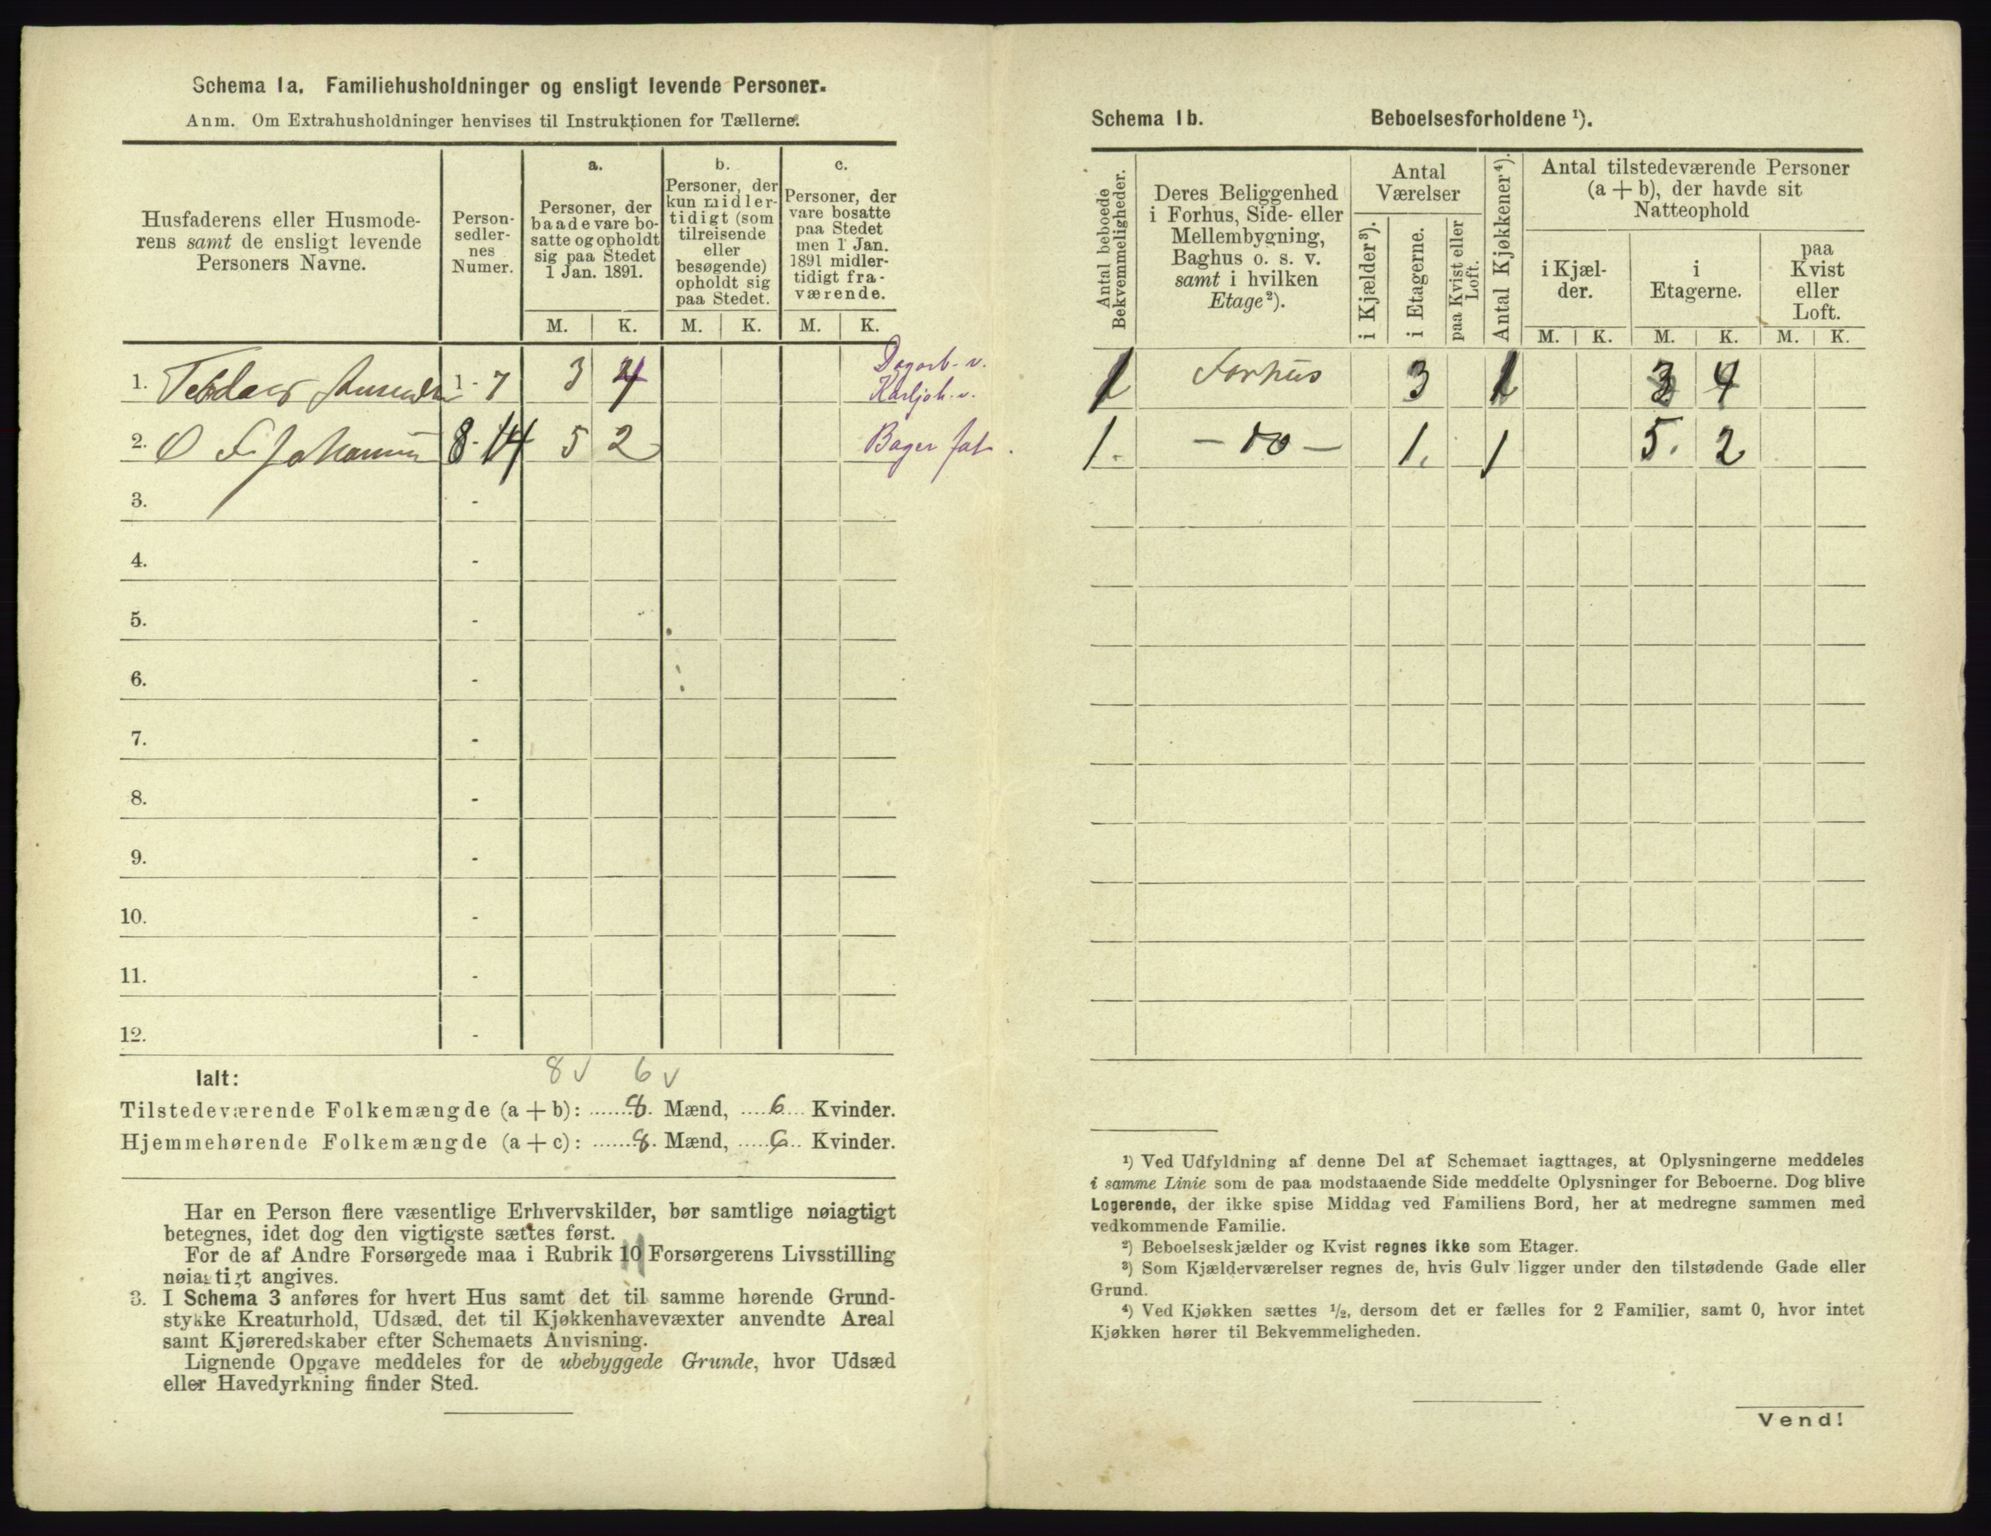 Schema 1a. Familiehusholdninger og ensligt levende Personer.
Anm. Om Extrahusholdninger henvises til Instruktionen for Tællerne.
Husfaderens eller Husmode-
rens samt de ensligt levende
Personers Navne.
Person-
sedler-
nes
Numer.
a.
Personer, der
baade vare bo-
satte og opholdt
sig paa Stedet
1 Jan. 1891.
b.
Personer, der
kun midler-
tidigt (som
tilreisende
eller
besøgende)
opholdt sig
paa Stedet.
c.
Personer, der
vare bosatte
paa Stedet
men 1 Jan.
1891 midler-
tidigt fra-
værende.
M. K. M. K. M. K.
1. 1 - 7 3 4 Dagarb. v.
Karljoh. v.
2. O F Johannsen 8-14 5 2 Bager fat.
3. -
4. -
5. -
6. -
7. -
8. -
9. -
10. -
11. -
12. -
8 v 6 v
Ialt:
Tilstedeværende Folkemængde (a + b): 8. Mænd, 6 Kvinder.
Hjemmehørende Folkemængde (a + c): 8. Mænd, 6 Kvinder.
Har en Person flere væsentlige Erhvervskilder, bør samtlige nøiagtigt
betegnes, idet dog den vigtigste sættes først.
For de af Andre Forsørgede maa i Rubrik 10 Forsørgerens Livsstilling
nøiagtigt angives.
3. I Schema 3 anføres for hvert Hus samt det til samme hørende Grund-
stykke Kreaturhold, Udsæd, det til Kjøkkenhavevæxter anvendte Areal
samt Kjøreredskaber efter Schemaets Anvisning.
Lignende Opgave meddeles for de ubebyggede Grunde, hvor Udsæd
eller Havedyrkning finder Sted.
Schema 1b. Beboelsesforholdene ¹).
Antal beboede
Bekvemmeligheder.
Deres Beliggenhed
i Forhus, Side- eller
Mellembygning,
Baghus o. s. v.
samt i hvilken
Etage²).
Antal
Værelser
i Kjælder³).
i Etagerne.
paa Kvist eller
Loft.
Antal Kjøkkener⁴).
Antal tilstedeværende Personer
(a + b), der havde sit
Natteophold
i Kjæl-
der.
i
Etagerne.
paa
Kvist
eller
Loft.
M. K. M. K. M. K.
1 Forhus 3 1 3 4
1. - do - 1. 1 5. 2
¹) Ved Udfyldning af denne Del af Schemaet iagttages, at Oplysningerne meddeles
i samme Linie som de paa modstaaende Side meddelte Oplysninger for Beboerne. Dog blive
Logerende, der ikke spise Middag ved Familiens Bord, her at medregne sammen med
vedkommende Familie.
²) Beboelseskjælder og Kvist regnes ikke som Etager.
³) Som Kjælderværelser regnes de, hvis Gulv ligger under den tilstødende Gade eller
Grund.
⁴) Ved Kjøkken sættes ½, dersom det er fælles for 2 Familier, samt 0, hvor intet
Kjøkken hører til Bekvemmeligheden.
Vend!